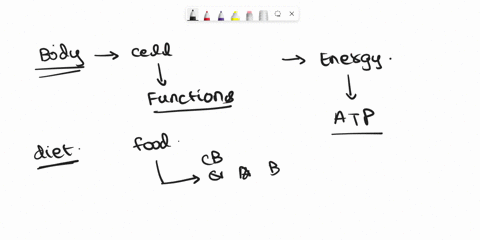 Body → cell → Energy.
↓ ↓
Functions ATP
diet. food.
CB
B